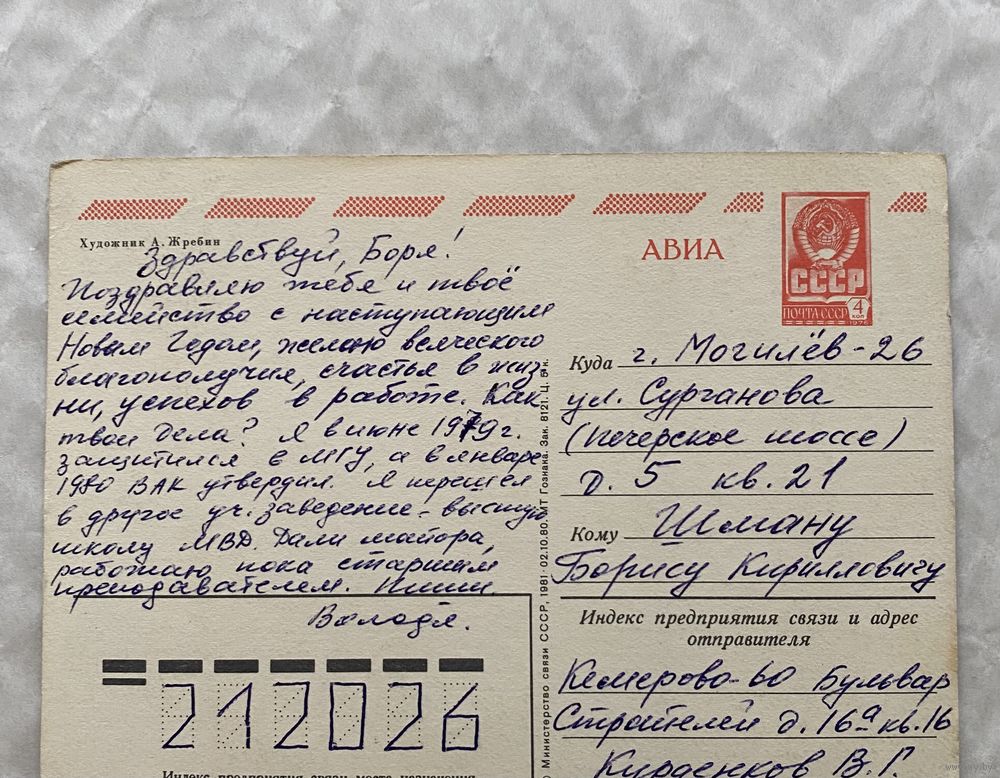 Художник А. Жребин
Здравствуй, Боря!
Поздравляю тебя и твоё
семейство с наступающим
Новым Годом, желаю всяческого
благополучия, счастья в жиз-
ни, успехов в работе. Как
твои дела? Я в июне 1979 г.
защитился в МГУ, а в январе
1980 ВАК утвердил. Я перешёл
в другое уч. заведение - высшую
школу МВД. Дали майора,
работаю пока старшим
преподавателем. Пиши.
Володя.
212026
Индекс предприятия связи места назначения
© Министерство связи СССР, 1981 · 02.10.80. МТ Гознака. Зак. 8121. Ц. 5 к.
АВИА
СССР
ПОЧТА СССР
4 КОП
1976
Куда г. Могилёв-26
ул. Сурганова
(Печерское шоссе)
д. 5 кв. 21
Кому Шману
Борису Кирилловичу
Индекс предприятия связи и адрес
отправителя
Кемерово-60 Бульвар
Строителей д. 16а кв. 16
В. Г.